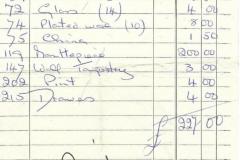 72 Glass (14) 4 00
74 Plated ware (10) 8 00
75 China 1 50
119 Mantlepiece 200 00
147 Wall Tapestry 3 00
202 Print 4 00
215 Drawes 4 00
£ 227 00